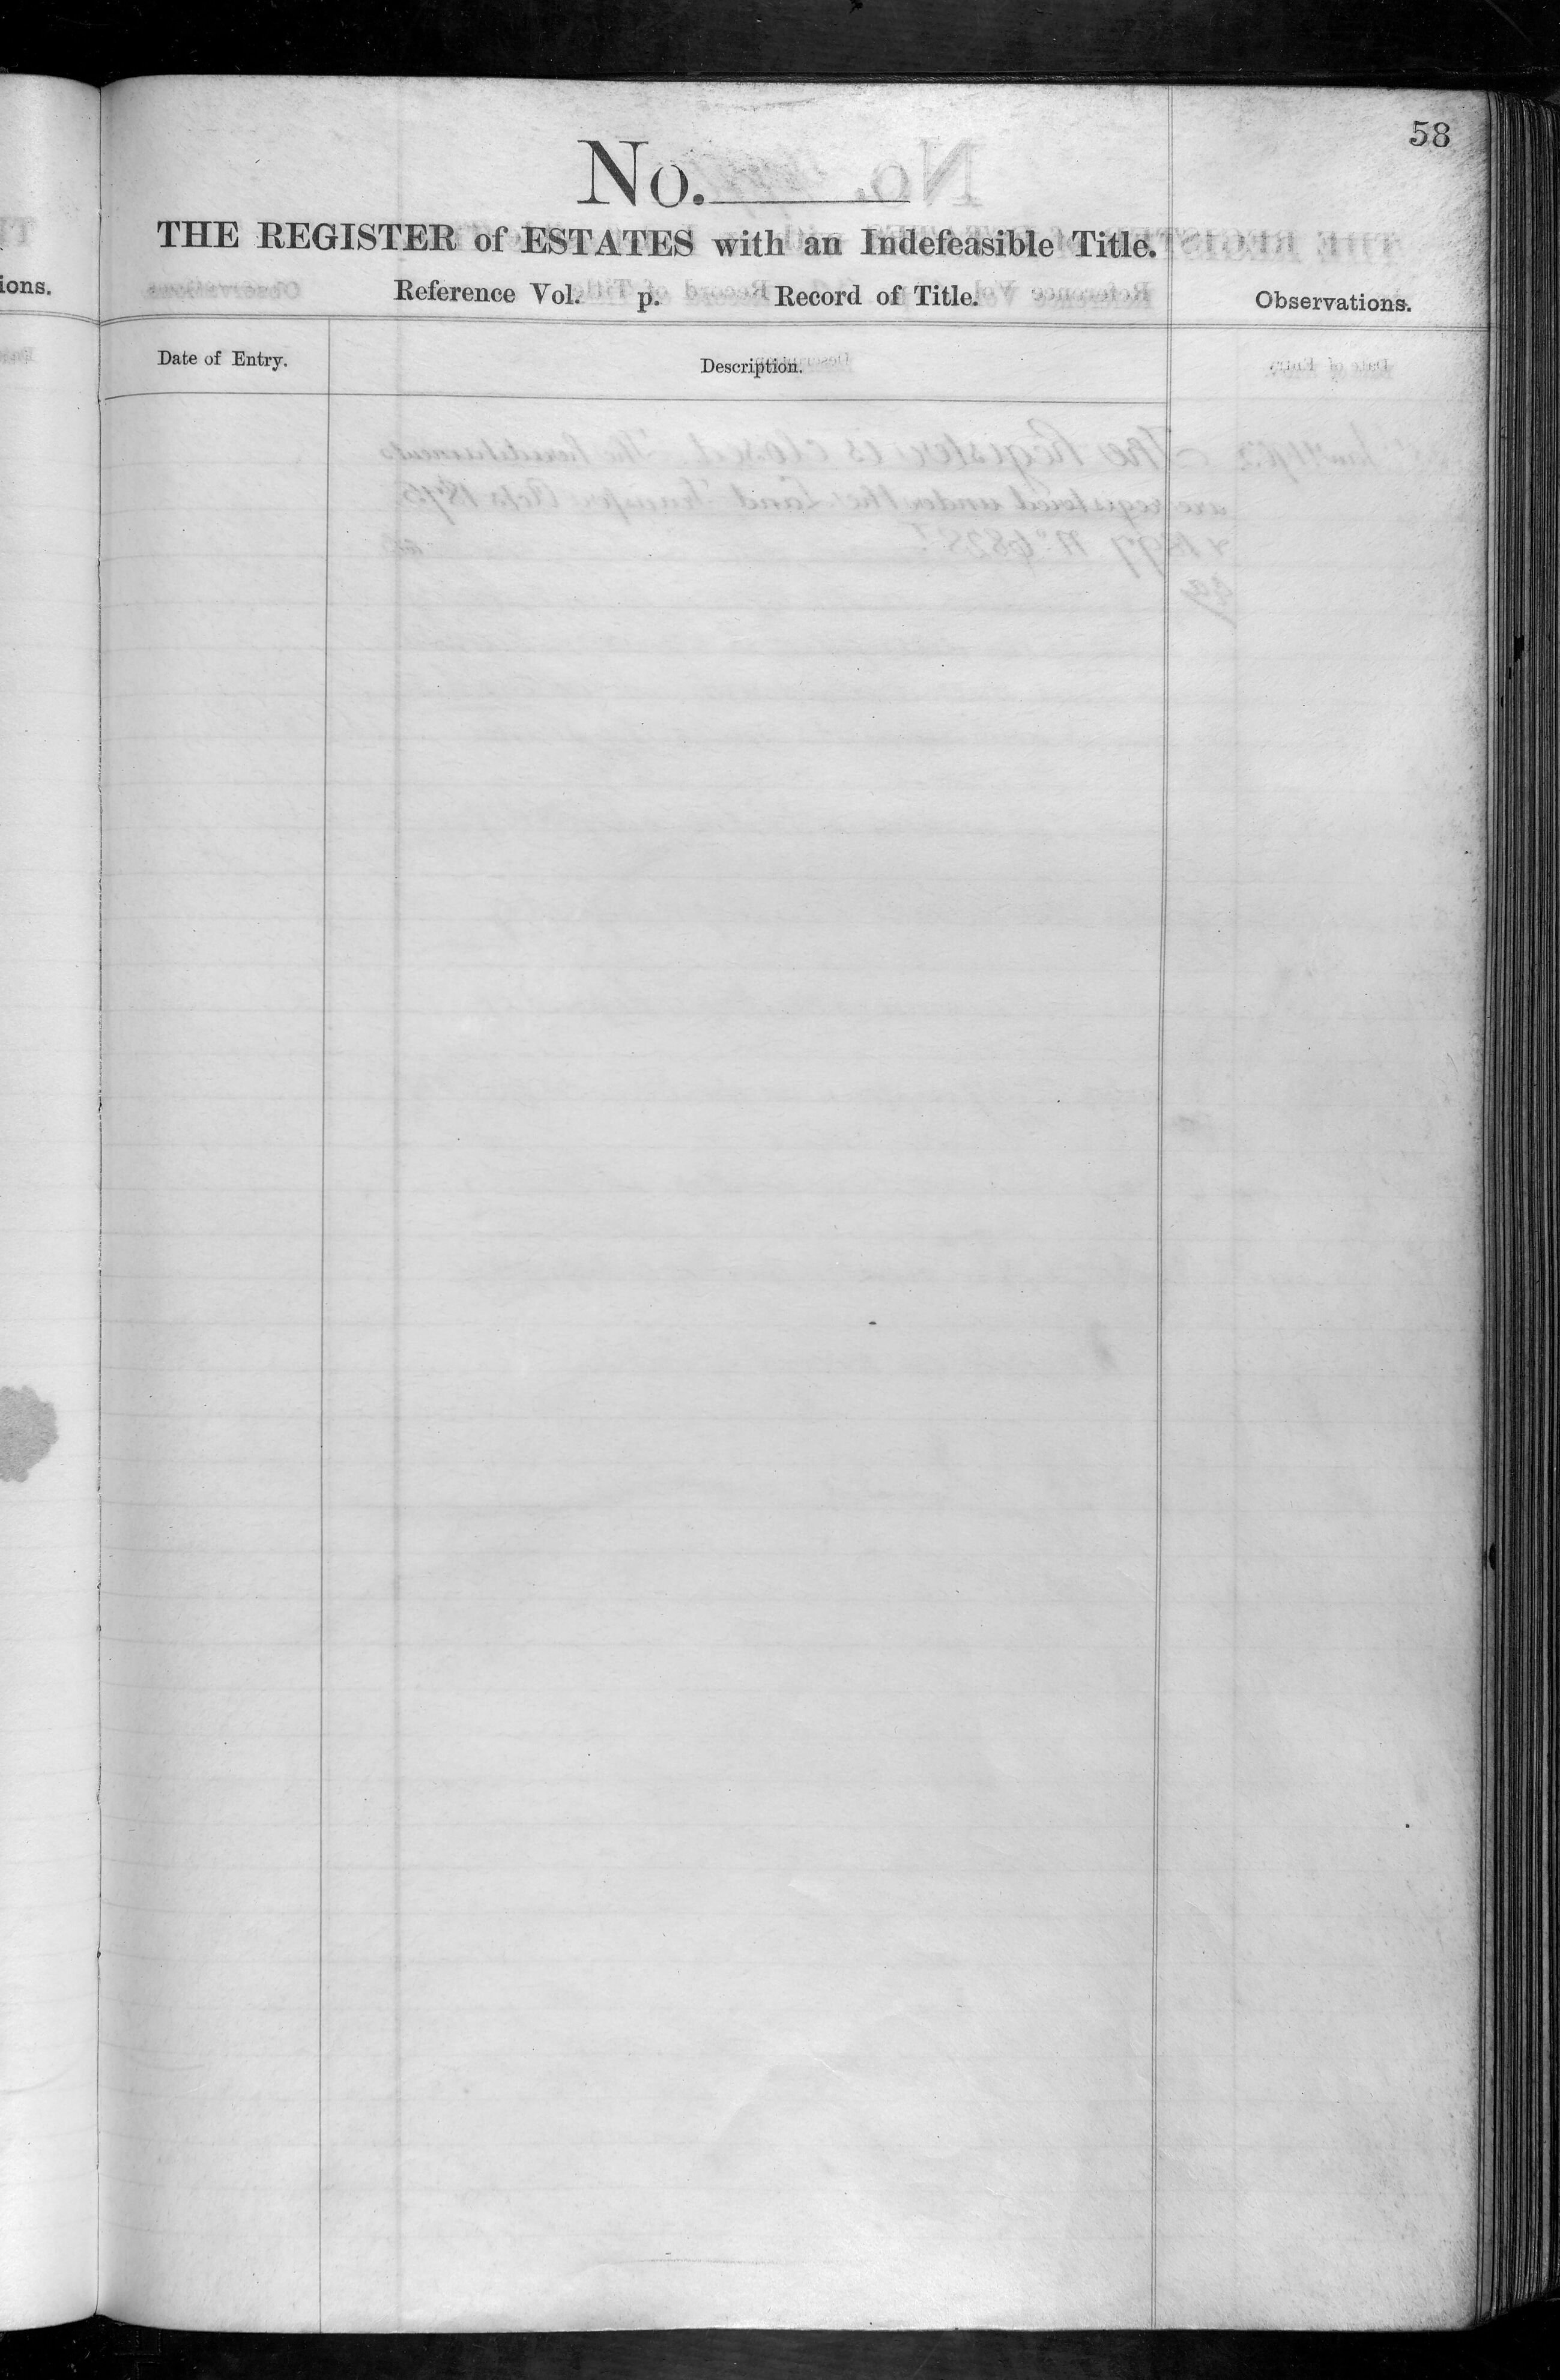 58
No.
THE REGISTER of ESTATES with an Indefeasible Title.
ions.
Reference Vol. p. Record of Title.
Observations.
Date of Entry.
Description.